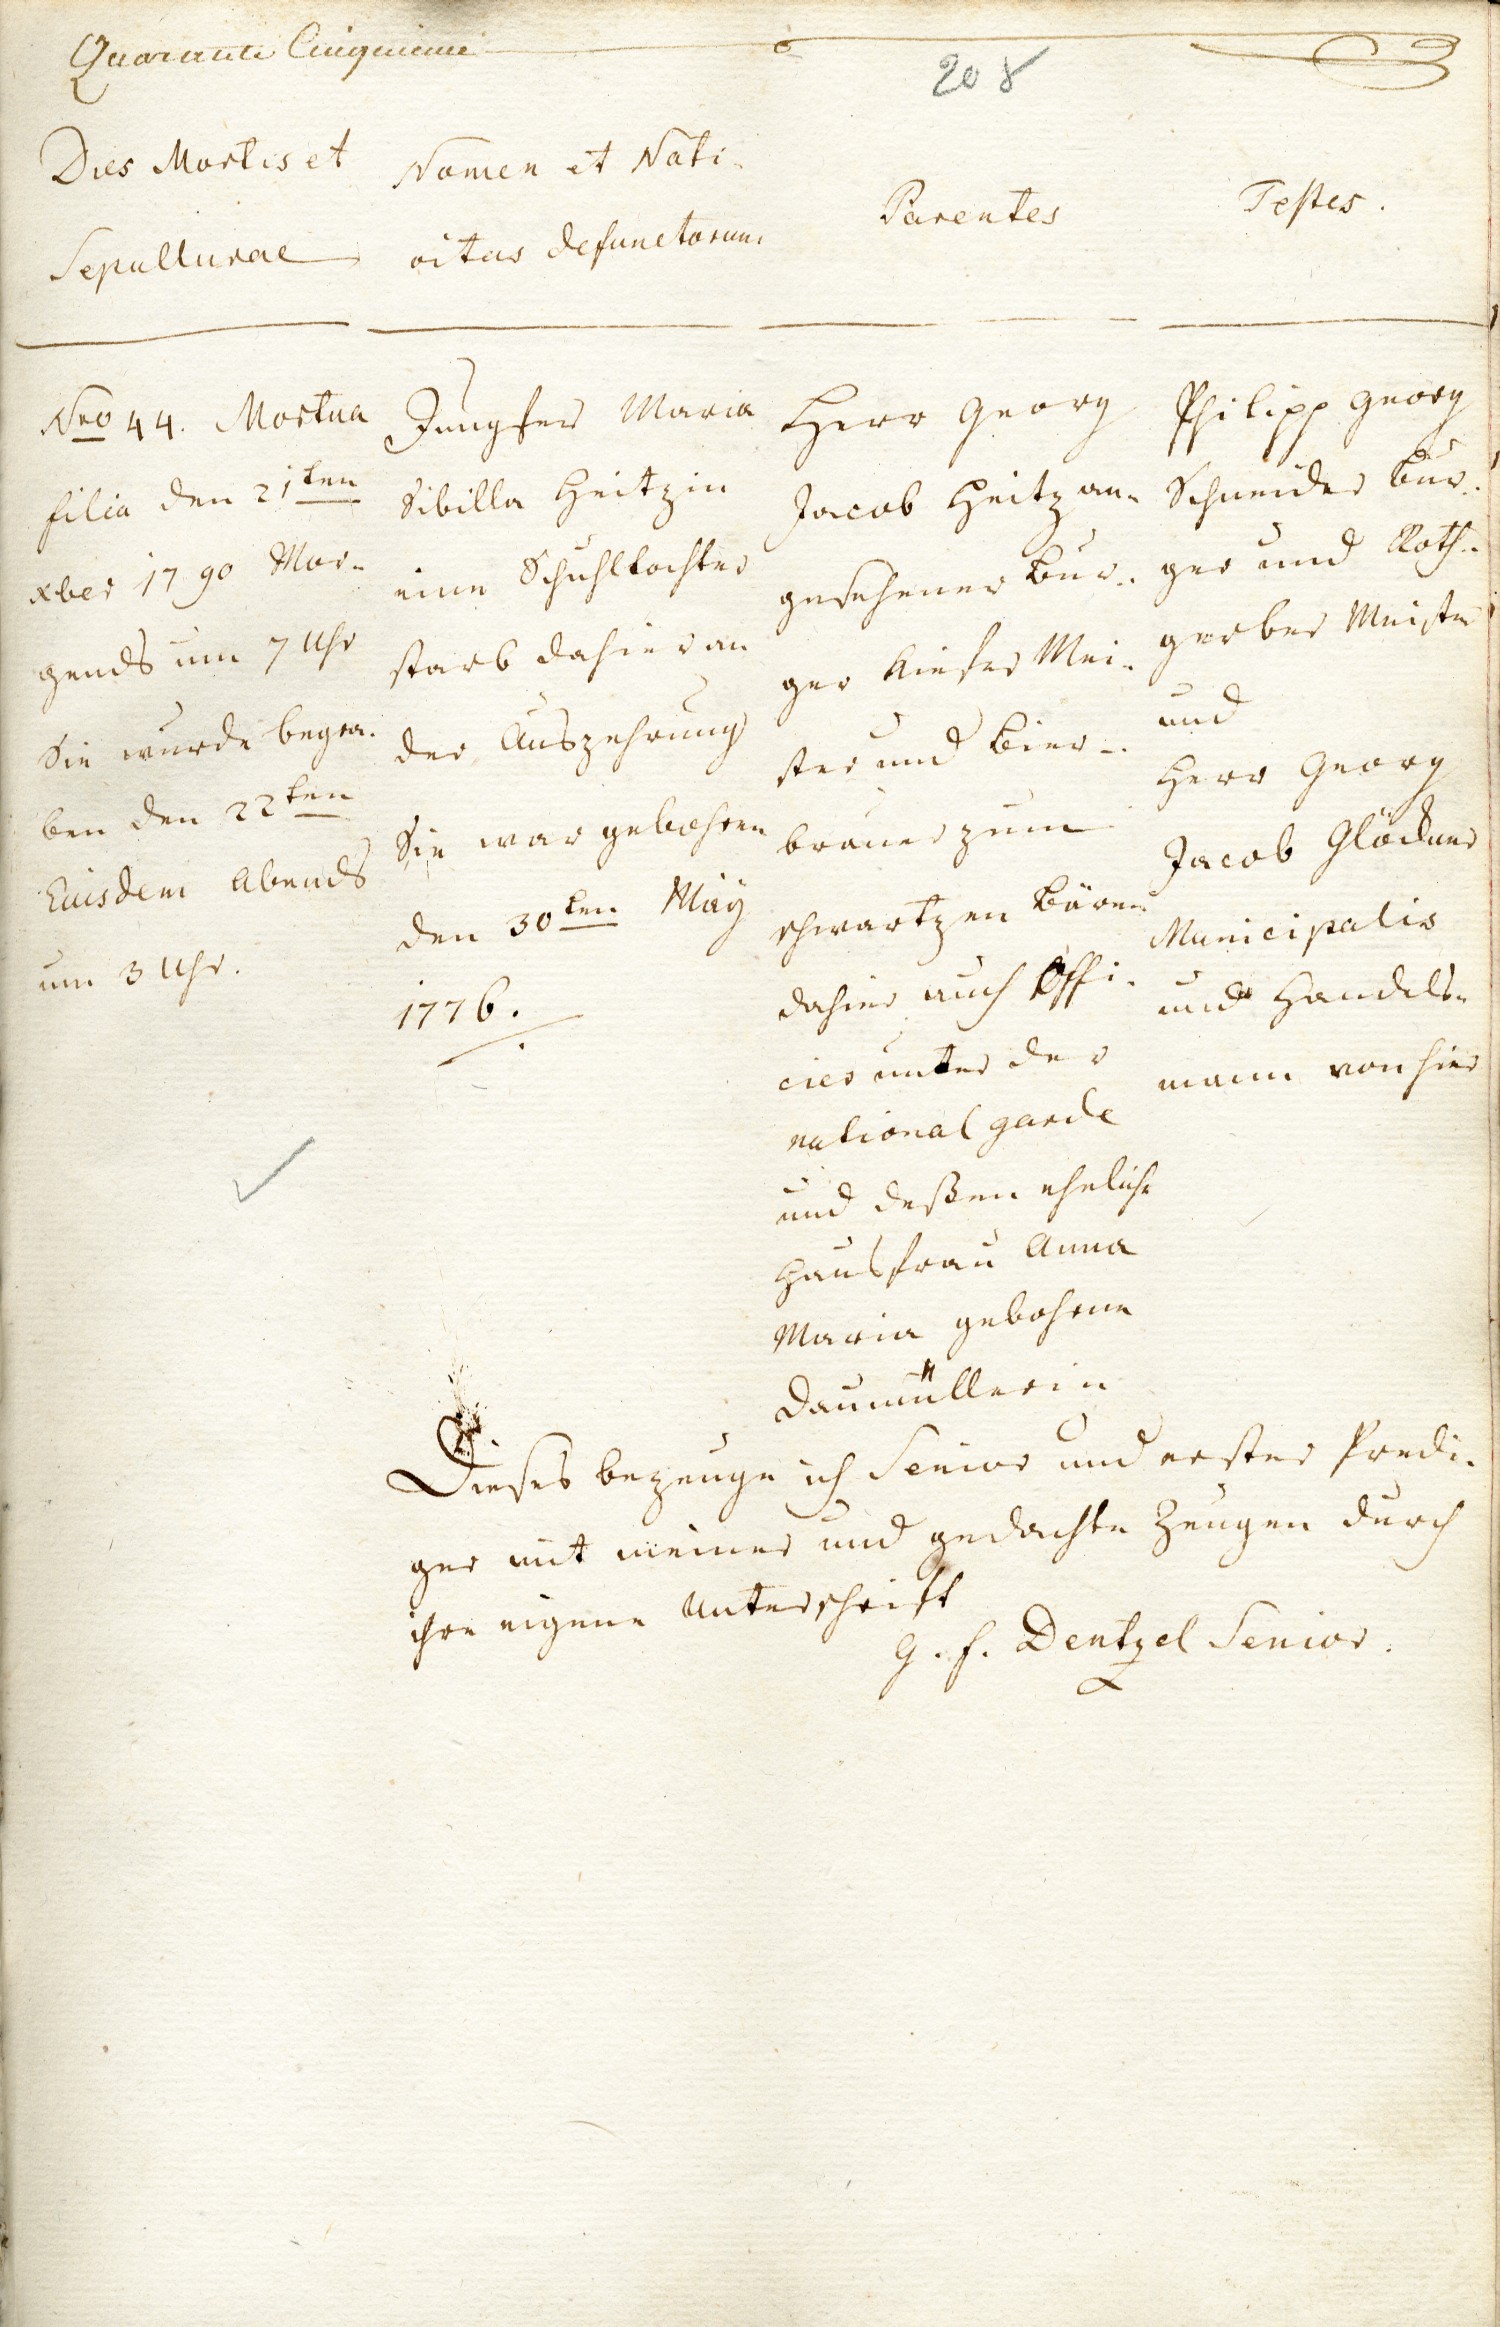 Quarante Cinquieme
208
Dies Mortis et
Sepulturae
Nomen et Nati-
vitas defunctorum
Parentes
Testes.
Nro 44. Mortua
filia den 21ten
xber 1790 Mor-
gends um 7 Uhr
Sie wurde begra-
ben den 22ten
Euisdem Abends
um 3 Uhr.
Jungfer Maria
Sibilla Heitzin
eine Schuhltochter
starb dahier an
der Auszehrung
Sie war gebohren
den 30ten May
1776.
Herr Georg
Jacob Heitz an-
gesehener Bur-
ger Kiefer Mei-
ster und Bier-
brauer zum
schwartzen Bären
dahier auch Offi-
cier unter der
national garde
und deßen ehelich
Hausfrau Anna
Maria gebohrne
Daumüllerin
Philipp Georg
Schneider Bur-
ger und Roth-
gerber Meister
und
Herr Georg
Jacob Glöckner
Municipalis
und Handels-
mann von hier
Dieses bezeuge ich Senior und erster Predi-
ger mit meiner und gedachte Zeugen durch
ihre eigene Unterschrift
G. F. Dentzel Senior.